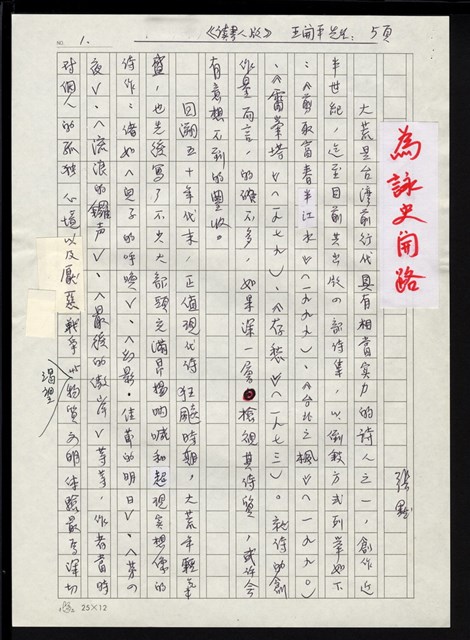 《讀書人版》 王開平先生： 5頁
NO. 1.
為詠史開路
張默
大荒是台灣前行代具有相當實力的詩人之一，創作近
半世紀，迄至目前共出版四部詩集，以倒敘方式列舉如下
：《剪取富春半江水》（一九九九）、《台北之楓》（一九九〇）
、《雷峯塔》（一九七九）、《存愁》（一九七三）。就詩的創
作量而言，的確不多，如果深一層檢視其詩質，或許會
有意想不到的豐收。
回溯五十年代末，正值現代詩狂飆時期，大荒年輕氣
盛，也先後寫了不少大部頭充滿昂揚吶喊和超現實想像的
詩作：諸如〈兒子的呼喚〉、〈幻影‧佳節的明日〉、〈第 的
夜〉、〈流浪的鑼声〉、〈最後的 〉等等，作者當時
對個人的孤独心境以及厭惡戰爭 物質文明体驗最為深切
渴望
25×12